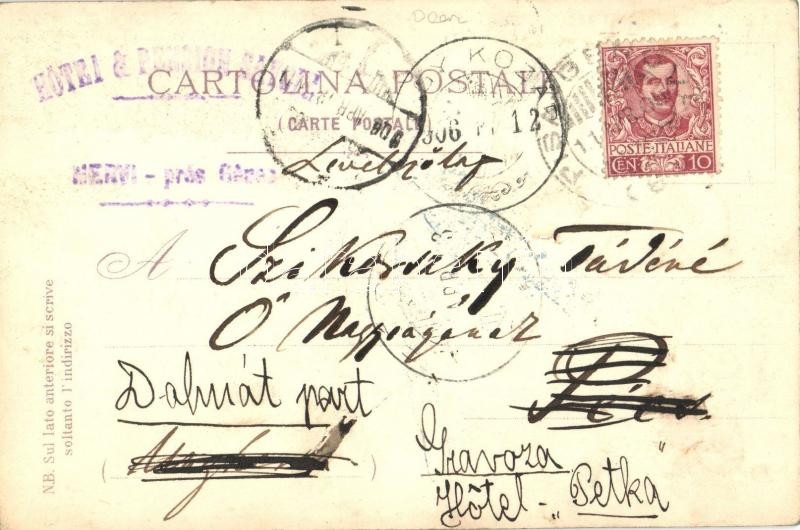 HÔTEL & PENSION
NERVI - près Gênes
CARTOLINA POSTALE
(CARTE POSTALE
Levelezőlap
906 12
POSTE·ITALIANE
CEN 10
A Szikorszky Tádéné
Ő Nagyságának
Pécs
Dalmát part
Gravoza
Hôtel - „Petka"
N.B. Sul lato anteriore si scrive
soltanto l'indirizzo